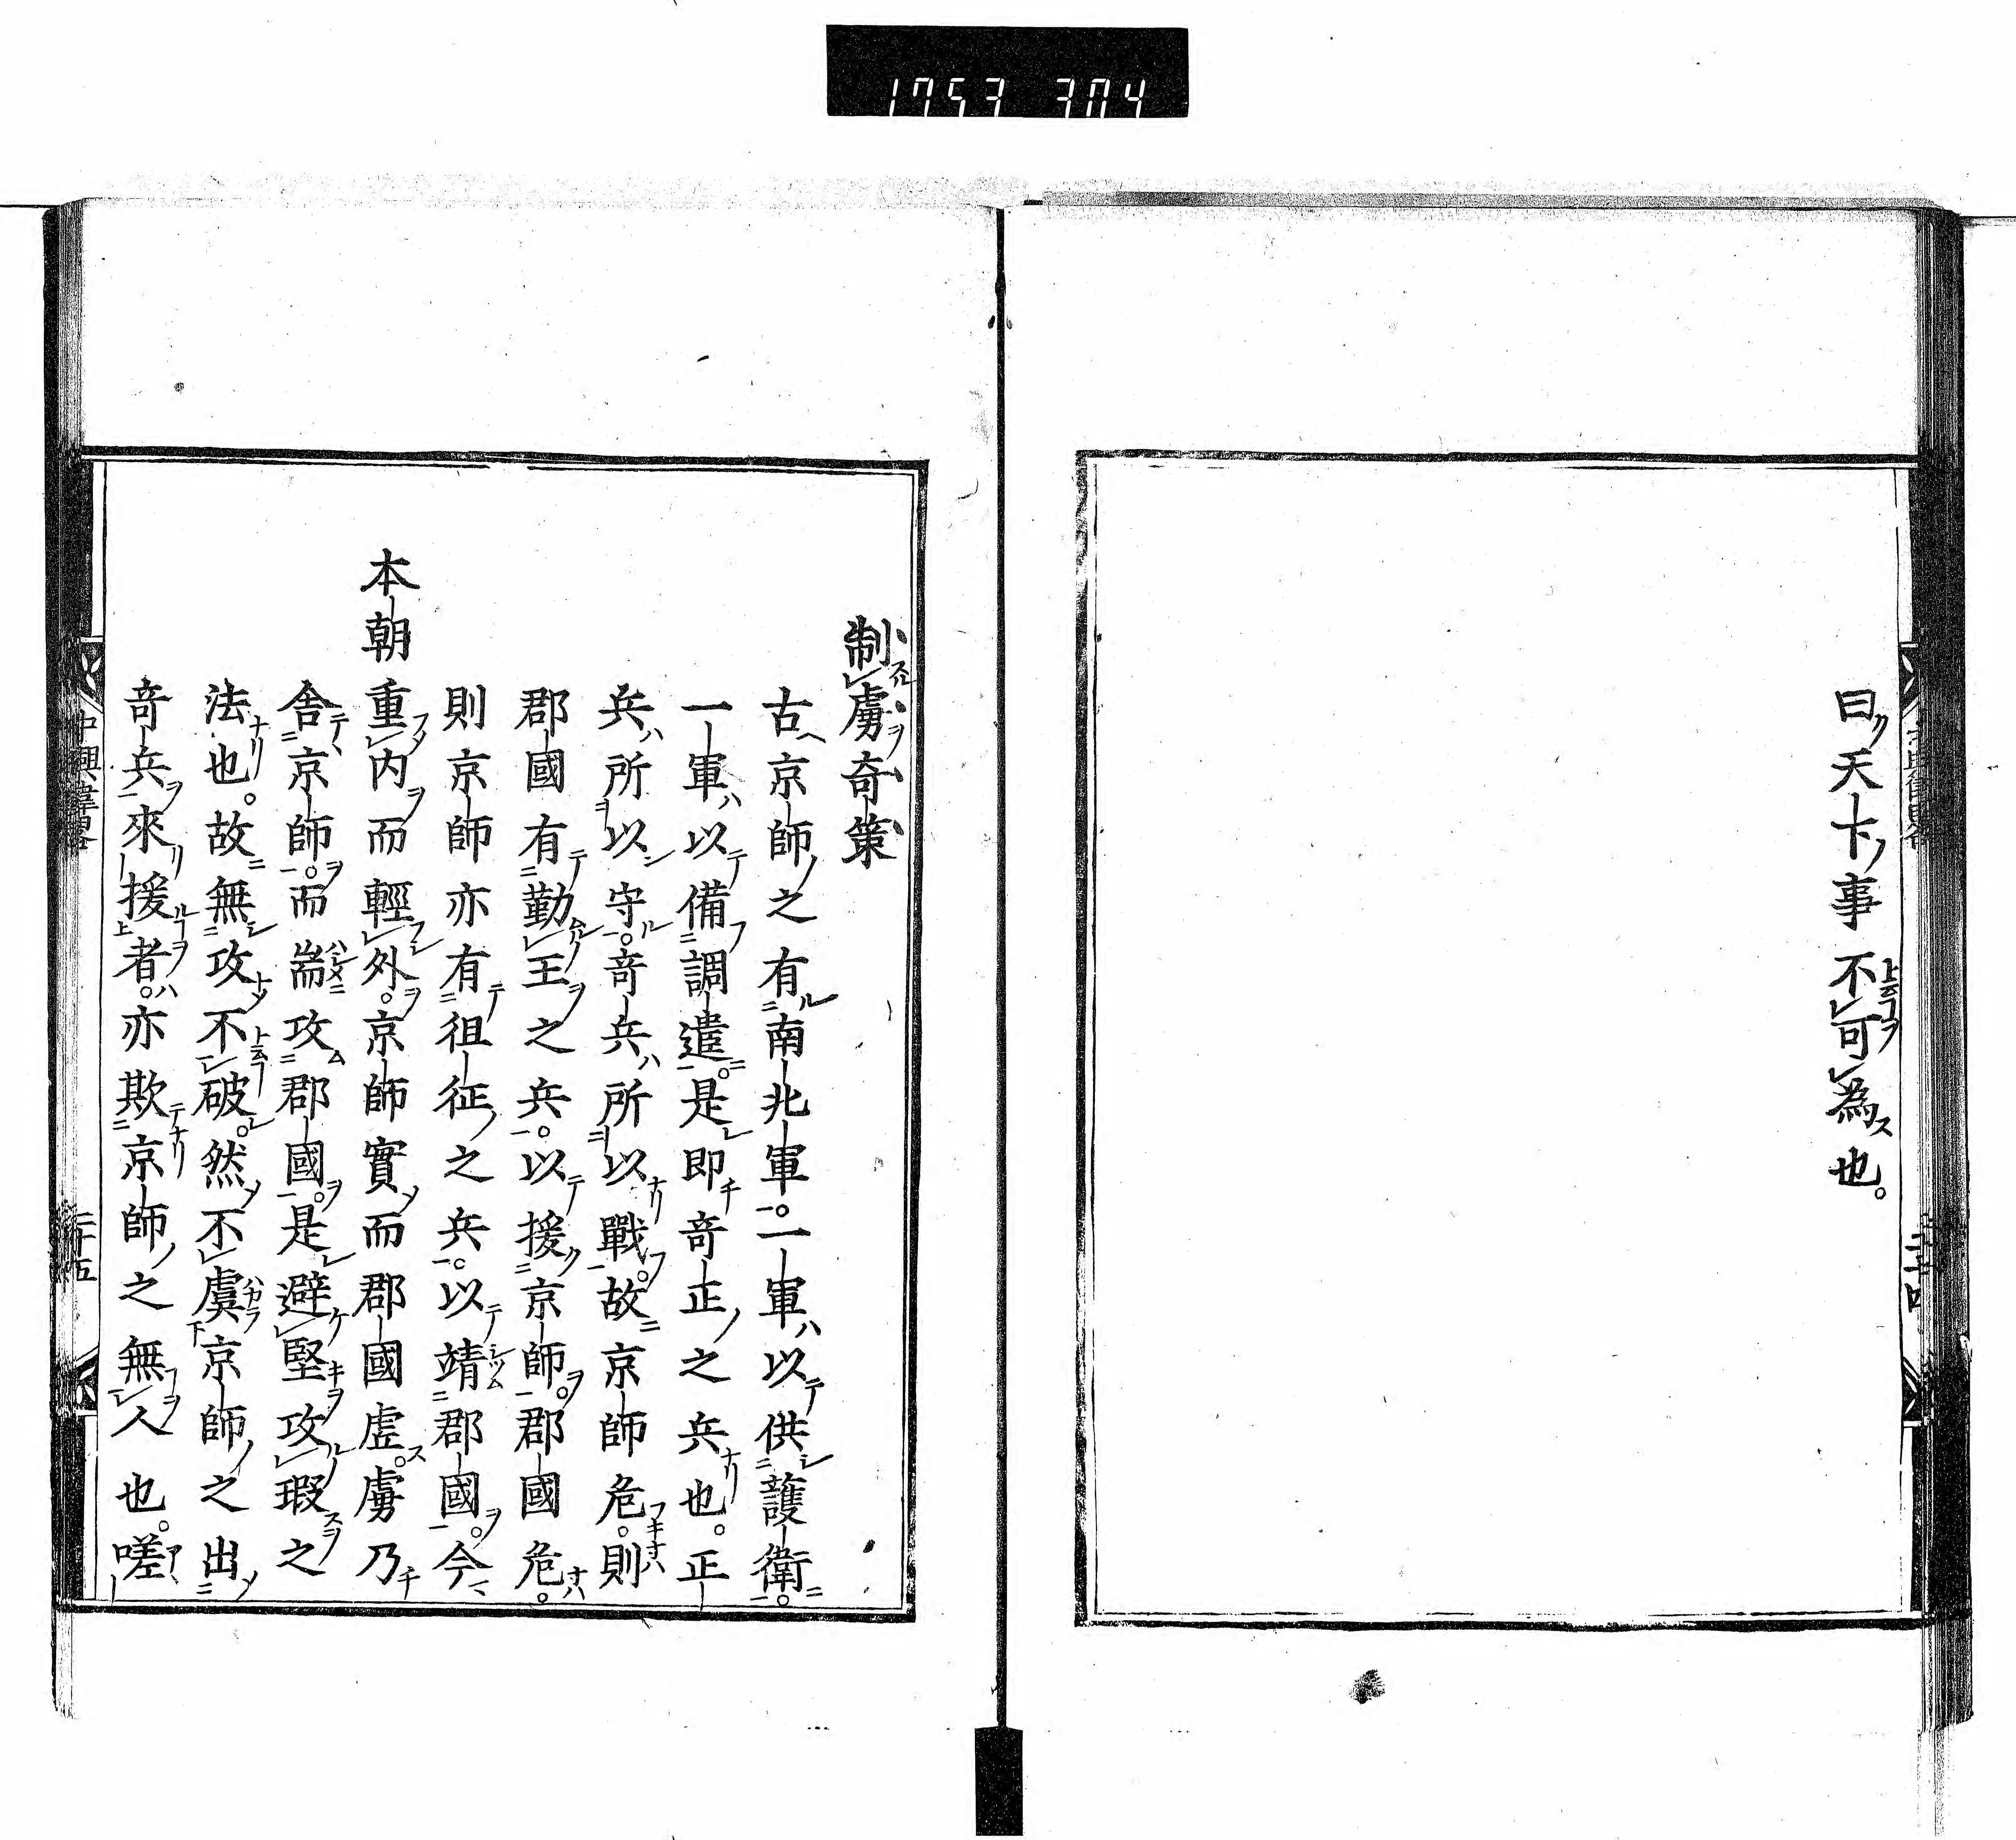 1753 304
曰天下事不可為也。
制虜奇策
古京師之有南北軍。一軍以供護衛。
一軍以備調遣。是即竒正之兵也。正
兵所以守。竒兵所以戰。故京師危。則
郡國有勤王之兵。以援京師。郡國危。
則京師亦有徂征之兵。以靖郡國。今
本朝重内而輕外。京師實而郡國虚。虜乃
舍京師。而耑攻郡國。是避堅攻瑕之
法也。故無攻不破。然不虞京師之出
竒兵來援者。亦欺京師之無人也。嗟
中興偉畧
二十五